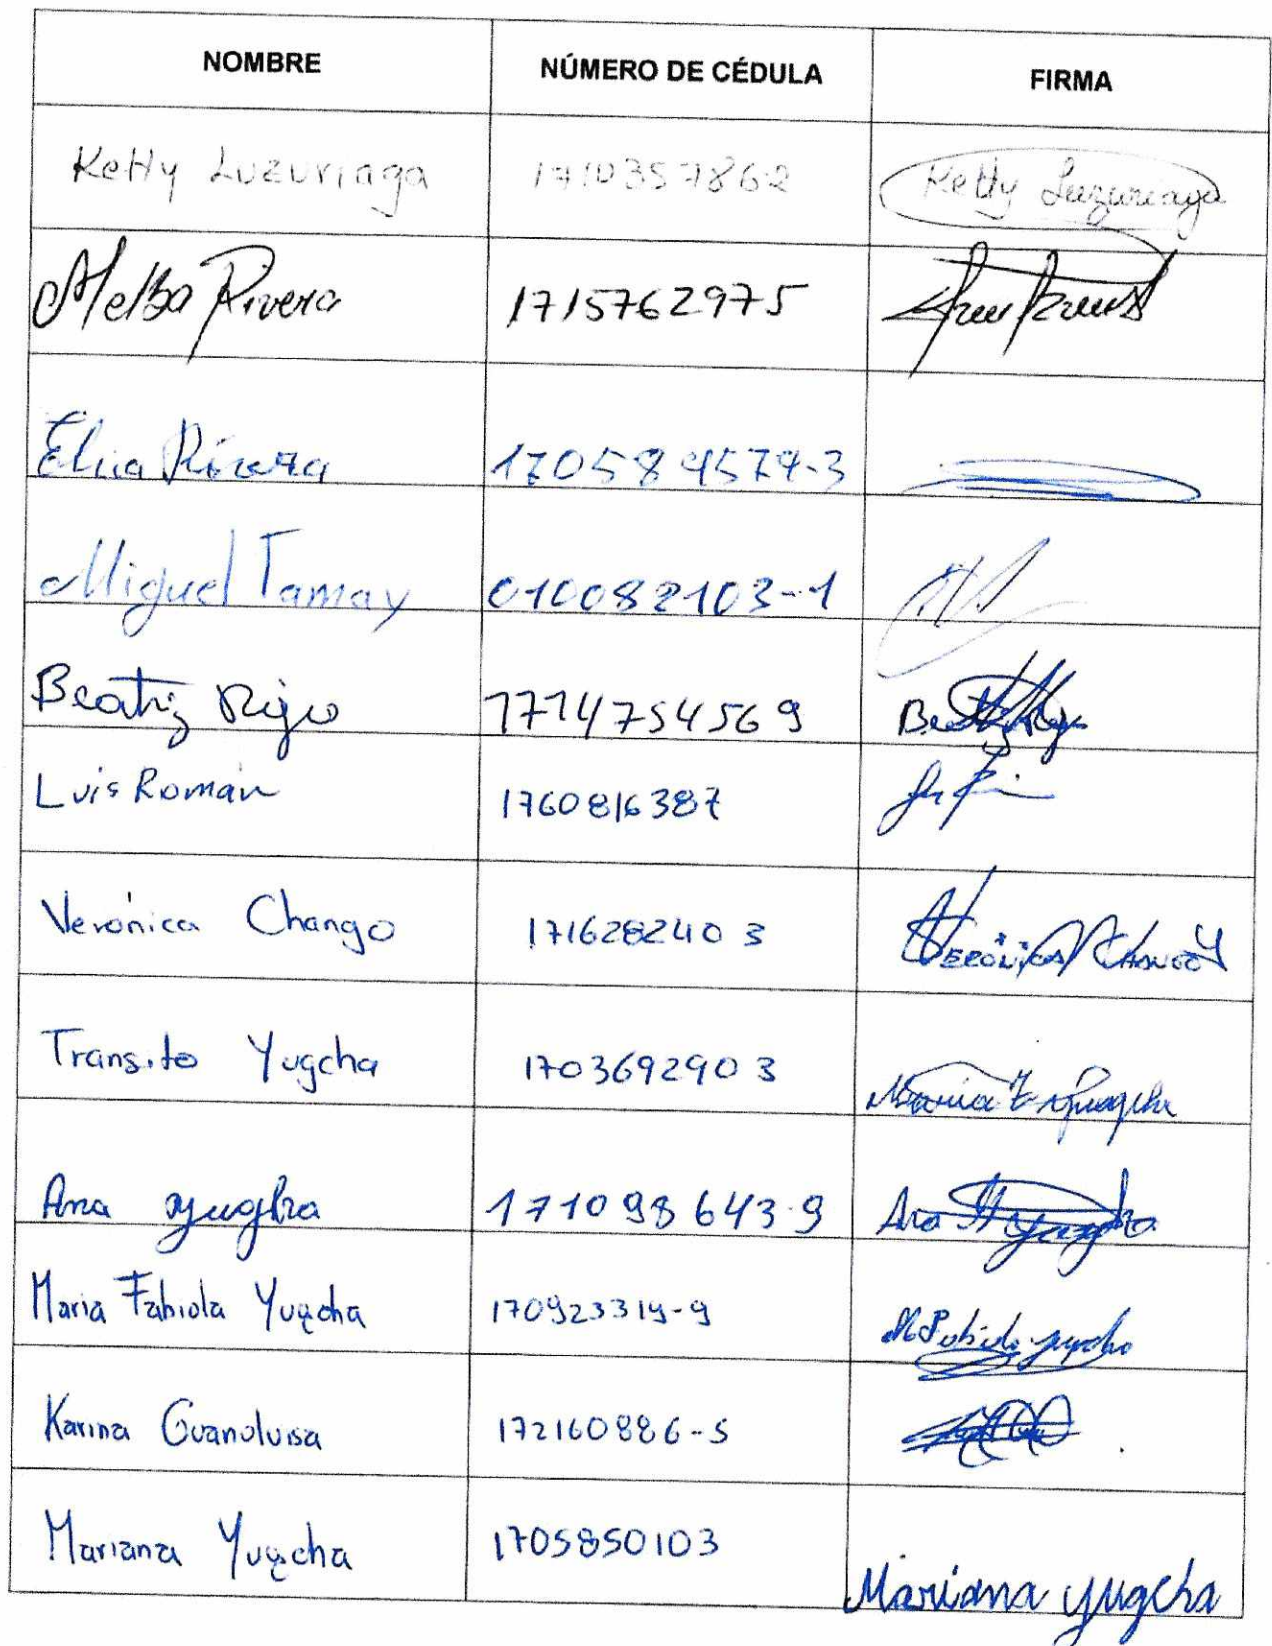 NOMBRE NÚMERO DE CÉDULA FIRMA
Ketty Luzuriaga 1710357862 Ketty Luzuriaga
Melba Rivera 1715762975
Elua Rivera 170584574-3
Miguel Tamay 010082103-1
Beatriz Rigio 1714754569
Luis Román 1760816387
Verónica Chango 1716282403 VERÓNICA CHANGO
Transito Yugcha 1703692903 Maria T Yugcha
Ana yugcha 171098643-9 Ana M yugcha
Maria Fabiola Yugcha 170923319-9
Karina Guanoluisa 172160886-5
Mariana Yugcha 1705850103 Mariana yugcha